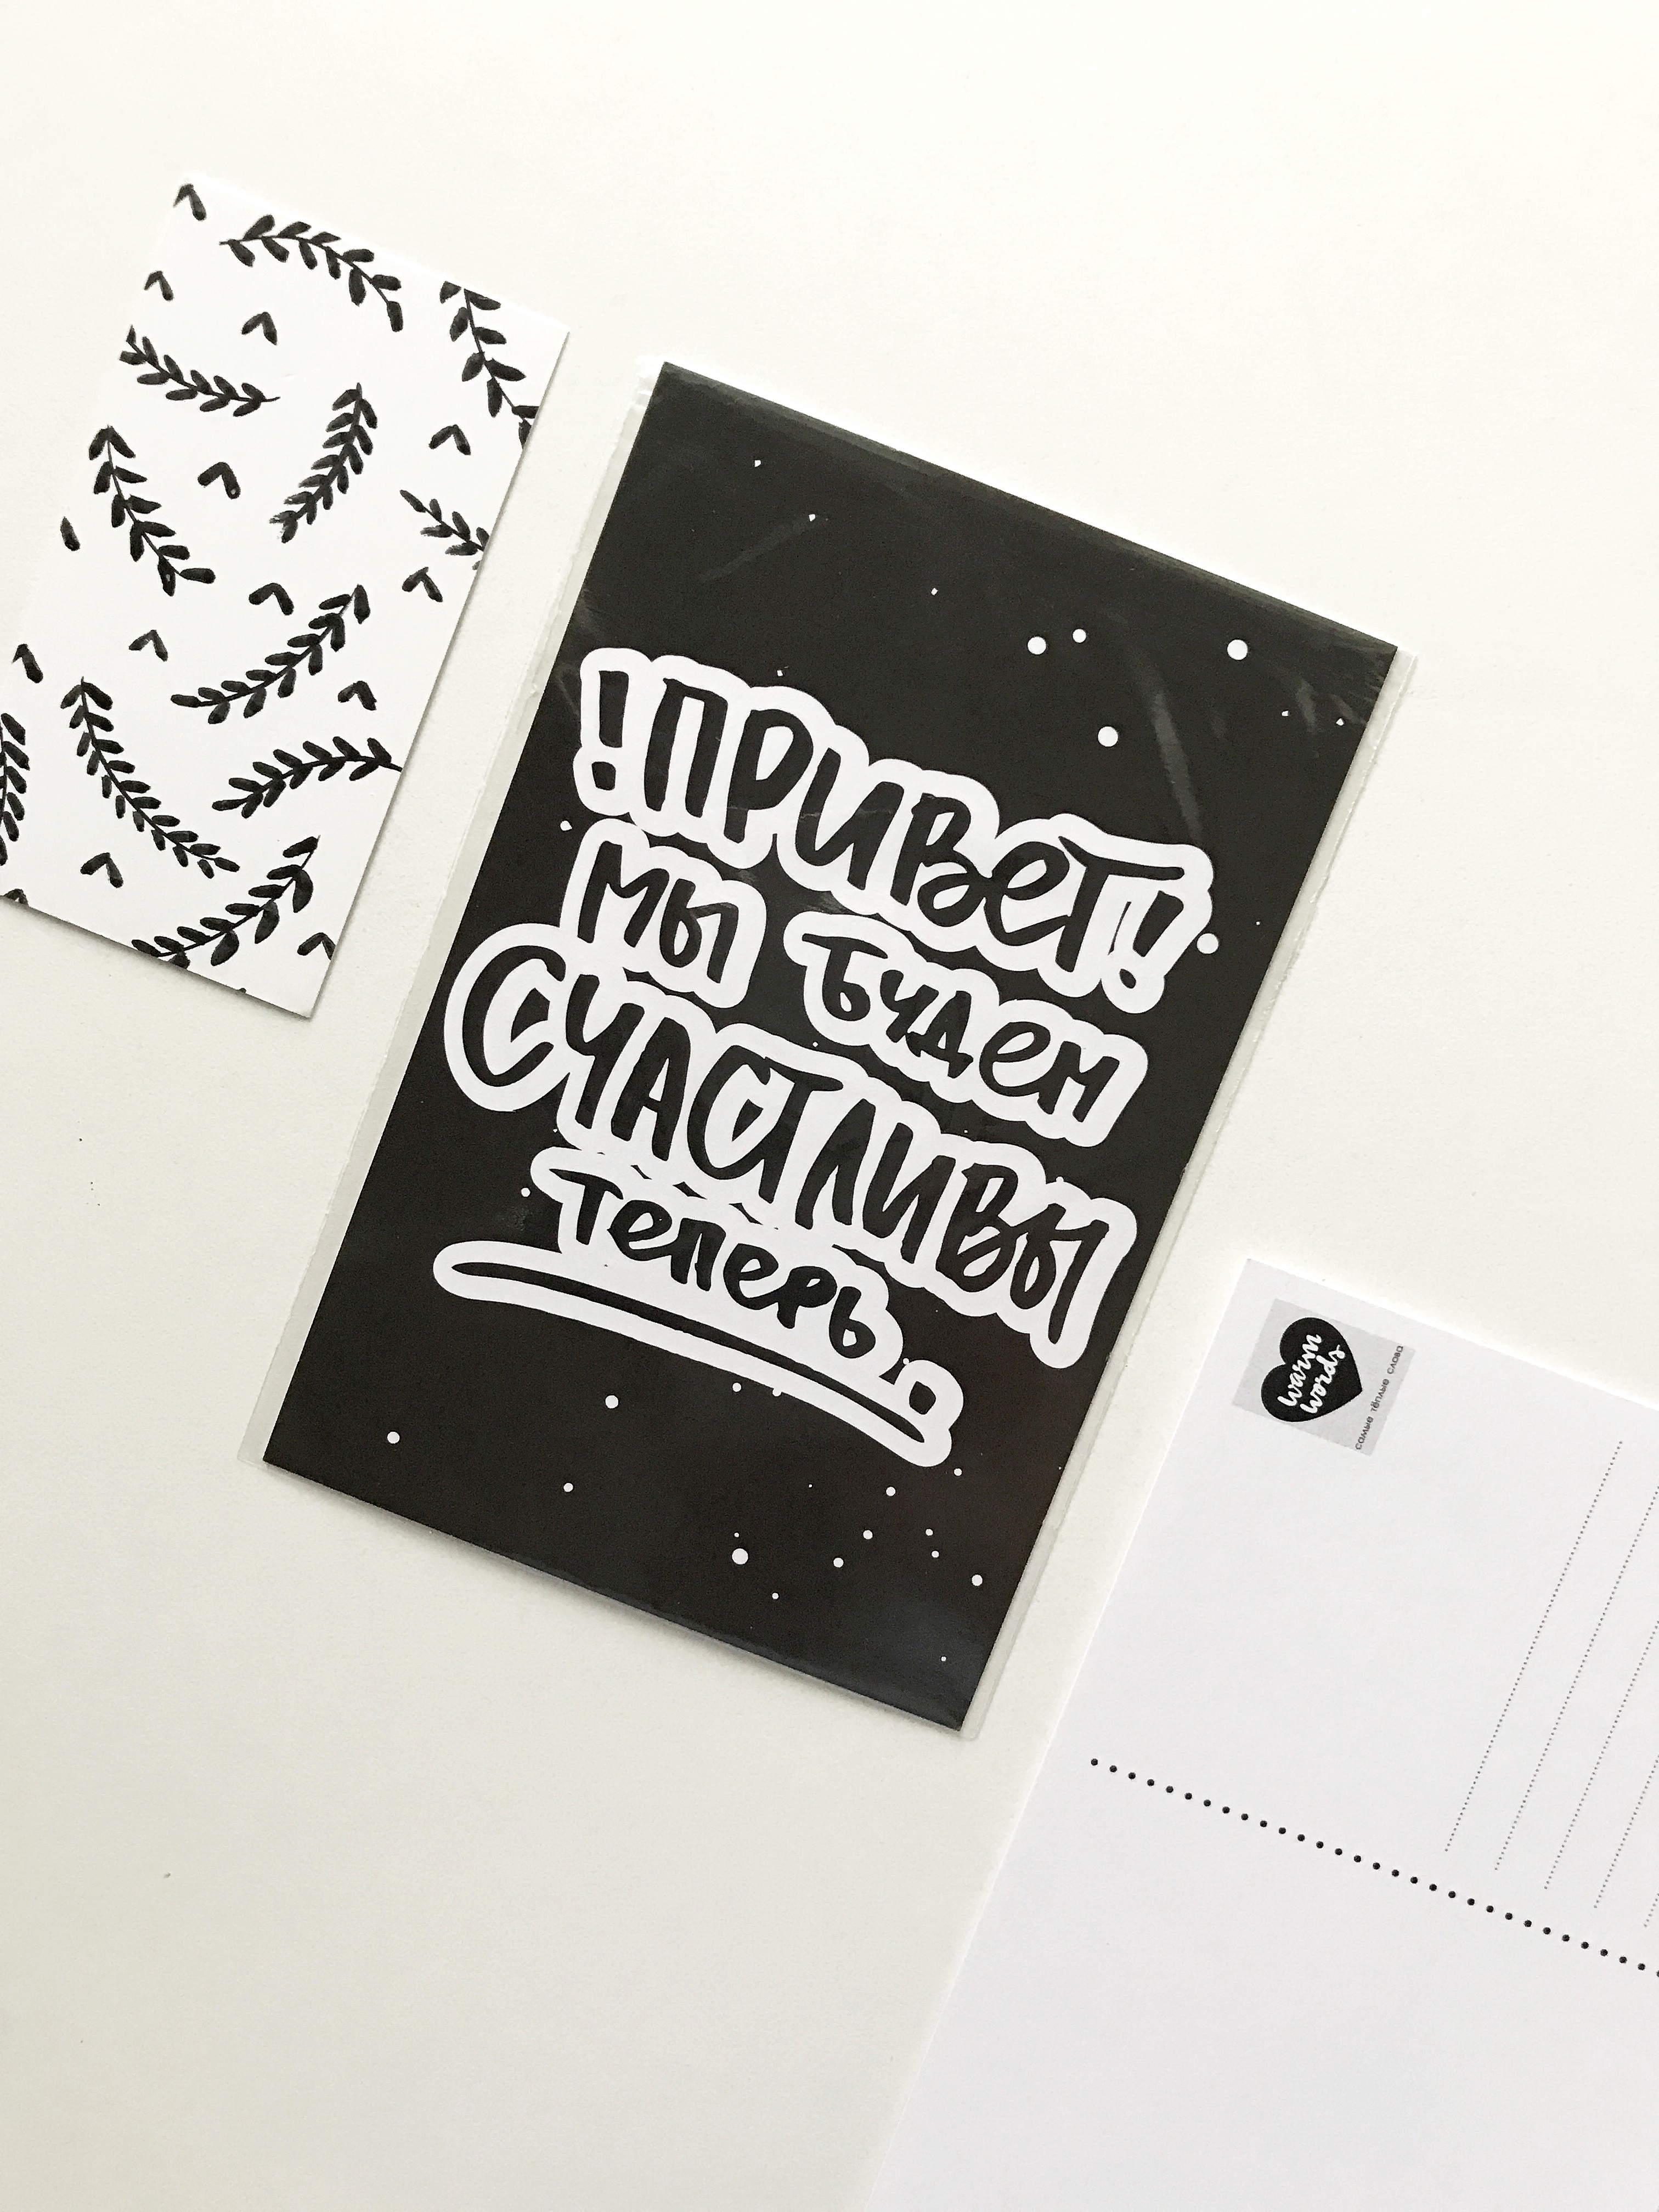 !ПРИВЕТ!
МЫ БУДЕМ
СЧАСТЛИВЫ
ТЕПЕРЬ.
warm
words
самые тёплые слова